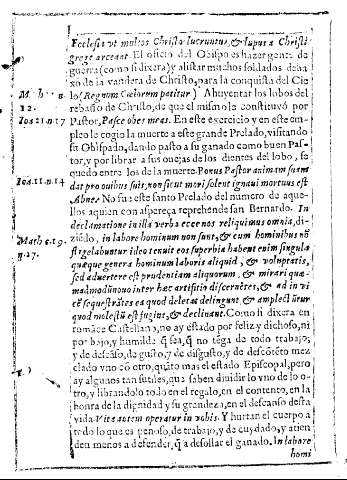 Ecclesia vt multos Christo lucruntur, & lupus a Christi
grege arceant. El oficio del Obispo es hazer gente de
guerra (como si dixera) y alistar muchos soldados deba
xo de la vandera de Christo, para la conquista del Cie
lo (Regnum Cœlorum petitur.) Ahuyentar los lobos del
rebaño de Christo, de que el mismo la constituyó por
Pastor, Pasce obes meas. En este exercicio y en este em
pleo le cogio la muerte a este grande Prelado, visitando
su Obispado, dando pasto a su ganado como buen Pas-
tor, y por librar a sus ouejas de los dientes del lobo, se
quedo entre los de la muerte. Bonus Pastor animam suam
dat pro ouibus suis, non sicut mori solent ignaui mortuus est
Abner. No fue este santo Prelado del numero de aque-
llos a quien con aspereça reprehende san Bernardo. In
declamatione in illa verba ecce nos reliquimus omnia, di-
ziēdo, in labore hominum non sunt, & cum hominibus nō
flagelabuntur ideo tenuit eos superbia habent enim singula
quæque genera hominum laboris aliquid, & voluptatis,
sed aduertere est prudentiam aliquorum, & mirari quæ-
madmodū nouo inter hæc artifitio discernētes, & ad in vi
cē sequestrātes ea quod delectat deligunt & amplectūtur
quod molestū est fugiūt, & declinant. Como si dixera en
romāce Castellano, no ay estado por feliz y dichoso, ni
por bajo, y humilde q̃ sea, q̃ no tēga de todo trabajo,
y de descāso, de gusto, y de disgusto, y de descōtēto mez
clado vno cō otro, quito mas el estado Episcopal, pero
ay algunos tan sutiles, que saben diuidir lo vno de lo o-
tro, y librandolo todo en el regalo, en el contento, en la
honra de la dignidad y su grandeza, en el descanso desta
vida. Vita autem operatur in vobis. Y hurtan el cuerpo a
todo lo que es penoso, de trabajo, y de cuydado, y atien
den menos a defender, q̃ a desollar el ganado. In labore
homi
12.
Ioa 21. n. 17
Ioa. 11. n. 14
Math c. 19.
n. 27.